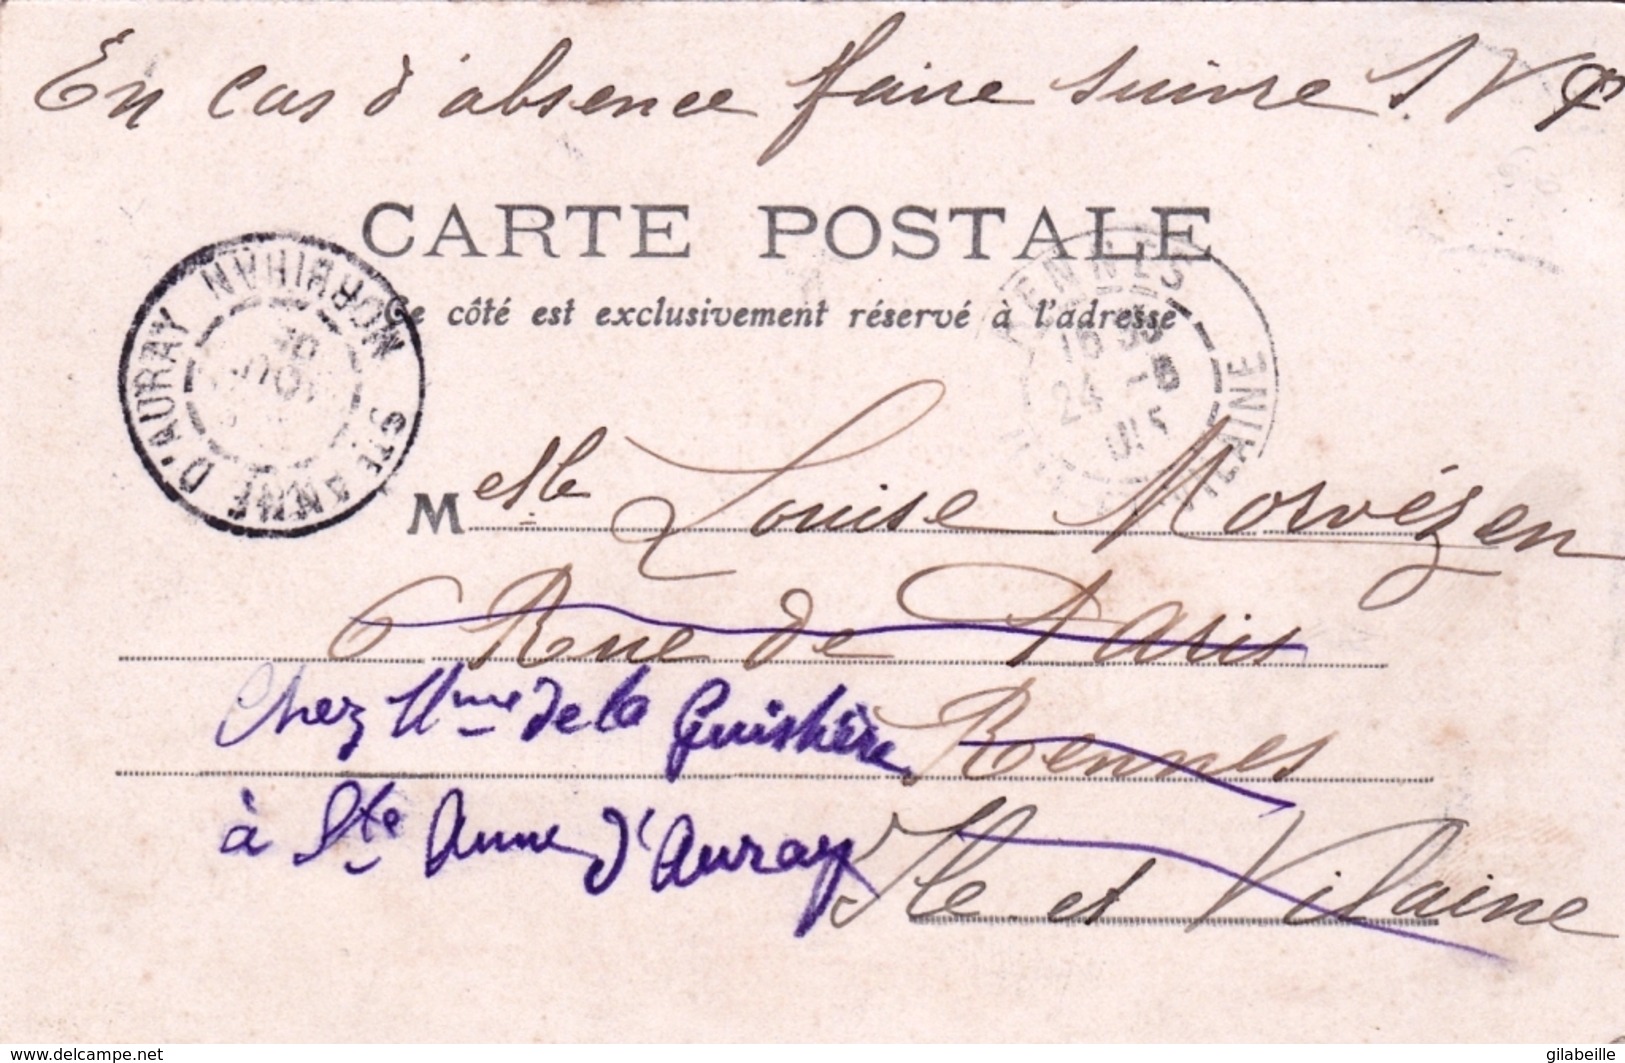 En cas d'absence faire suivre S.V.P
CARTE POSTALE
Ce côté est exclusivement réservé à l'adresse
STE ANNE D'AURAY MORBIHAN
RENNES
24 -8
VILAINE
Melle Louise Morvézen
6 Rue de Paris
Chez Mme de la Guistière
Rennes
à Ste Anne d'Auray
Ille et Vilaine
www.delcampe.net
gilabeille